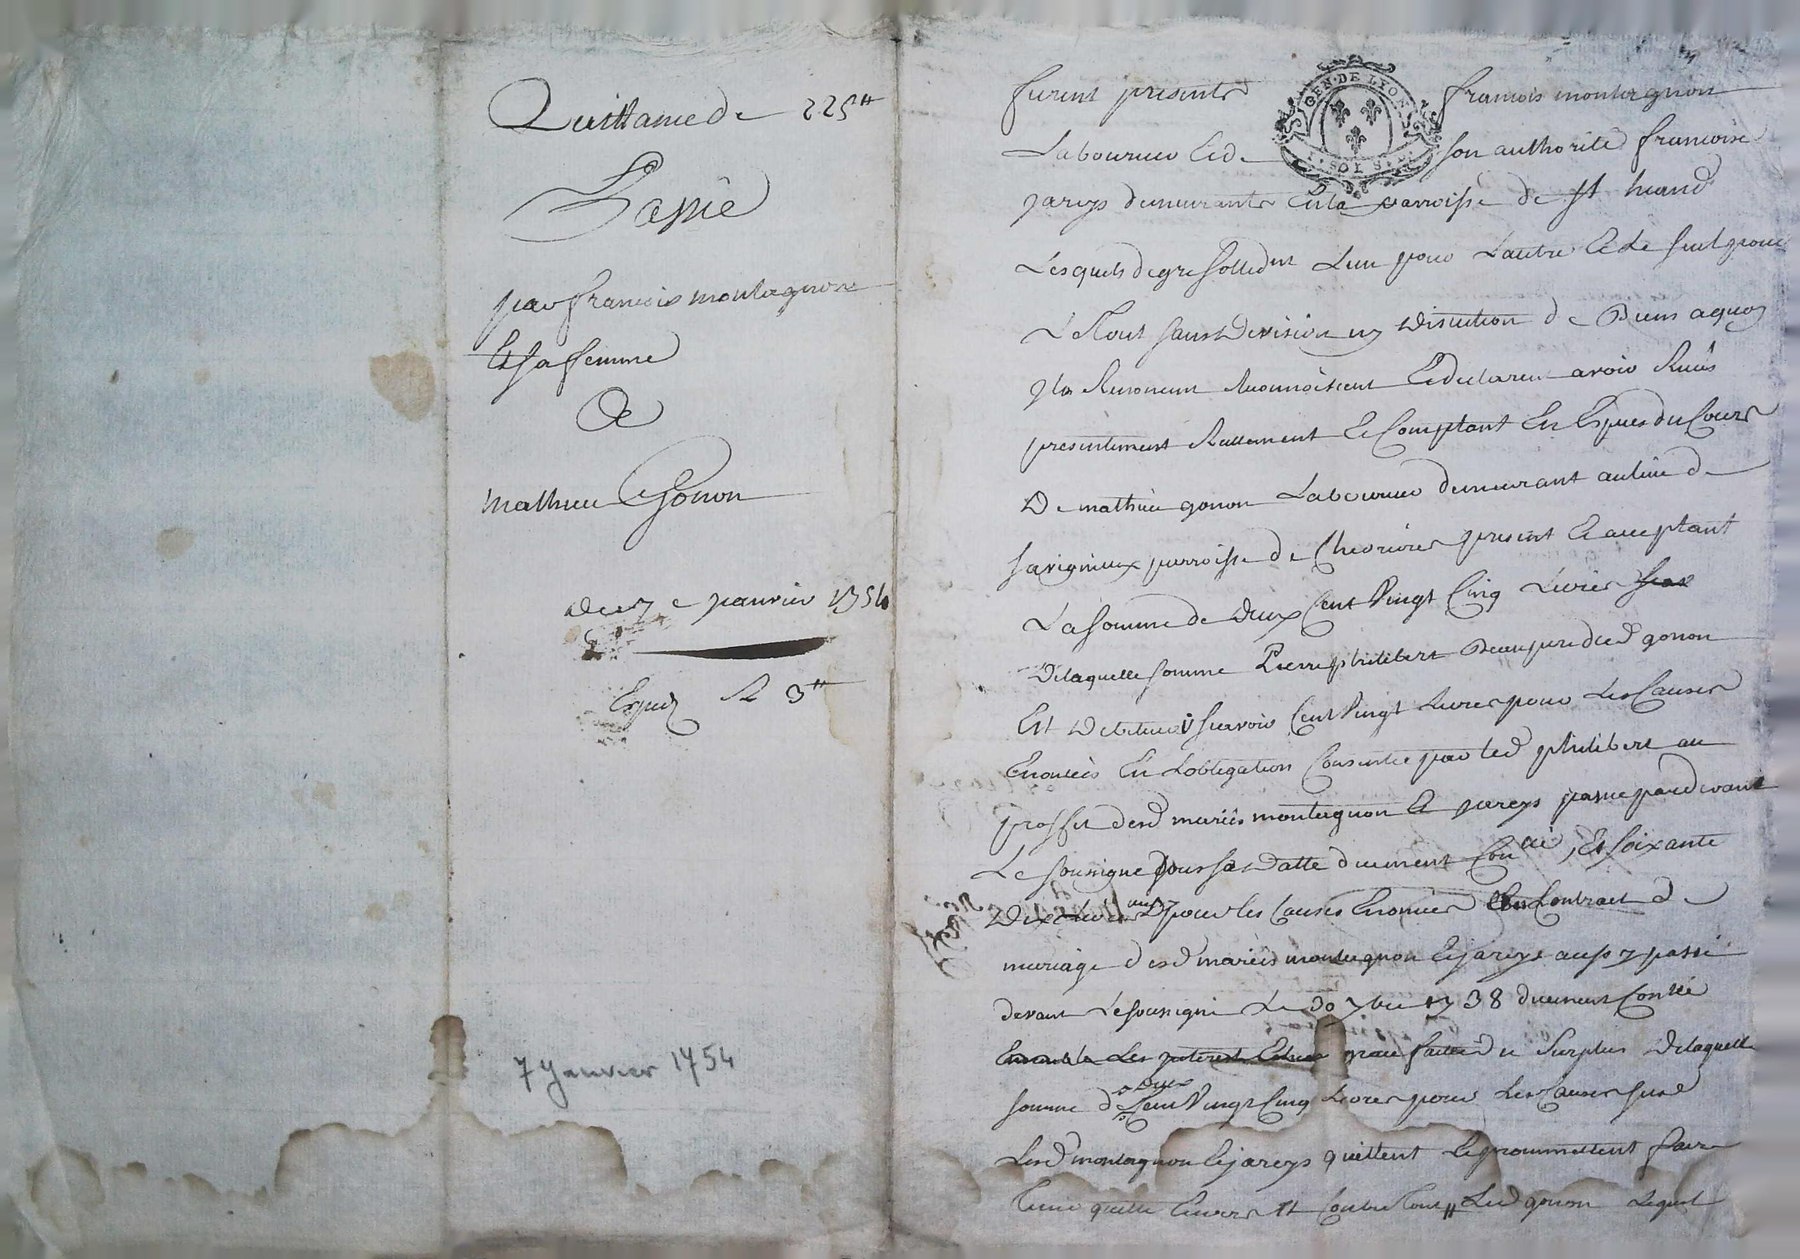 Quittance de 225tt
Passée
par francois montagnon
et sa femme
A
mathieu Gonon
du 7e janvier 1754
Exped 3tt
7 Janvier 1754
GEN·DE LYON
SOLS
furent presents francois montagnon
Laboureur et de son authorité francoise
jareys demeurants en la parroisse de st heand
Lesquels de gre sollid.nt L'un pour L'autre et le seul pour
Le tout sans division ny discution de biens a quoy
ils renoncent reconnoissent et declarent avoir reçus
presentement reellement et comptant en espces du cours
De mathieu gonon Laboureur demeurant au lieu de
savignieux parroisse de Chevrieres present et acceptant
La somme de deux Cent Vingt Cinq Livres
De laquelle somme Pierre philibert beaupere dud gonon
Est debiteur scavoir Cent Vingt Livres pour les Causes
Enoncées En L'obligation Consentie par led philibert au
proffit desd mariés montagnon et jareys passée pardevant
Le soussigné sous sa datte duement Con.llé, Et soixante
Dix Livres pour les Causes Enoncées Contract de
mariage desd mariés montagnon et jareys aussy passé
devant Le soussigné Le 30 7bre 1738 duement Con.llé
Les interest grace faitte du surplus De laquelle
somme de deux Cent Vingt Cinq Livres pour Les Causes susd
Lesd montagnon et jareys quittent et promettent faire
tenir quitte Envers et Contre tout Led gonon Lequel